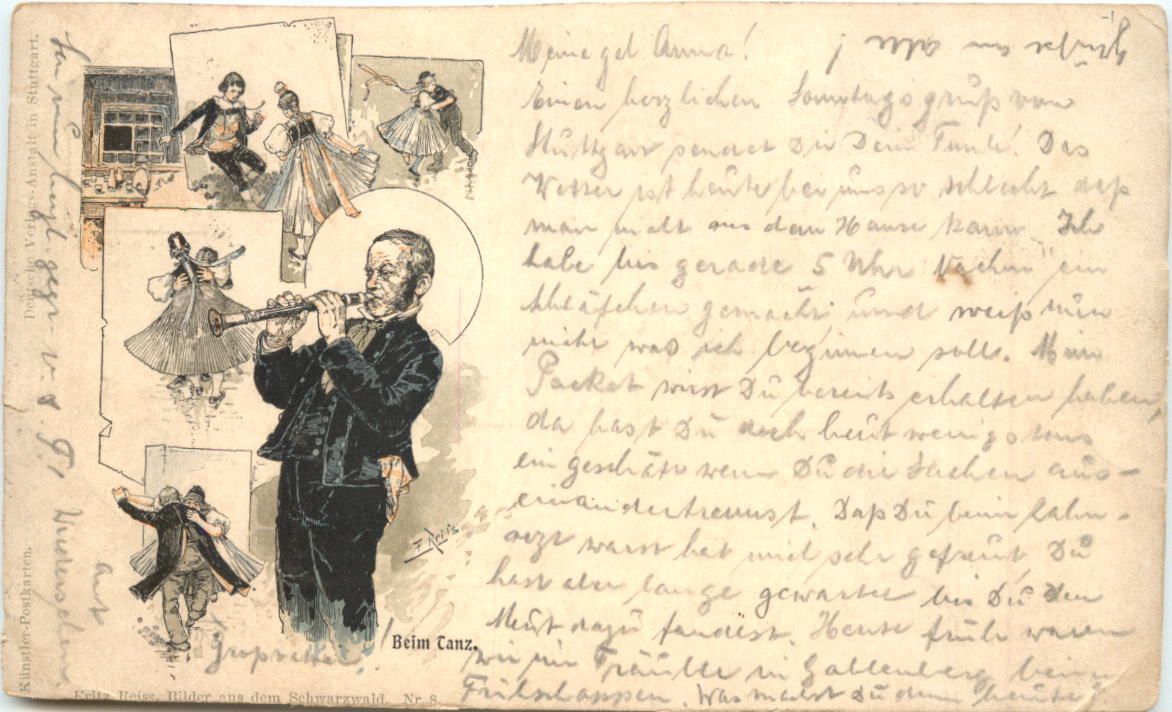 Meine gel. Anna!
Grüße an alle!
Einen herzlichen Sonntagsgruß von
Stuttgart sendet Dir Deine Das
Wetter ist heute bei uns so schlecht daß
man nicht aus dem Hause kann Ich
habe bis gerade 5 Uhr ein
Schläfchen gemacht und weiß nun
nicht was ich beginnen soll. Mein
Packet wirst Du bereits erhalten haben,
da hast Du doch heut wenigstens
ein geschäft wenn Du die Sachen aus-
einandertrennst. Daß Du beim Zahn-
arzt warst hat mich sehr gefreut, Du
hast aber lange gewartet bis Du den
Mut dazu fandest. Heute früh waren
wir in beim
Was machst Du denn heute?
herzl. gegr. v. d.
auf Wiedersehen
Großvater!
F. Reiss
Beim Tanz.
Fritz Reiss, Bilder aus dem Schwarzwald. Nr. 8.
Künstler-Postkarten.
Deutsche Verlags-Anstalt in Stuttgart.